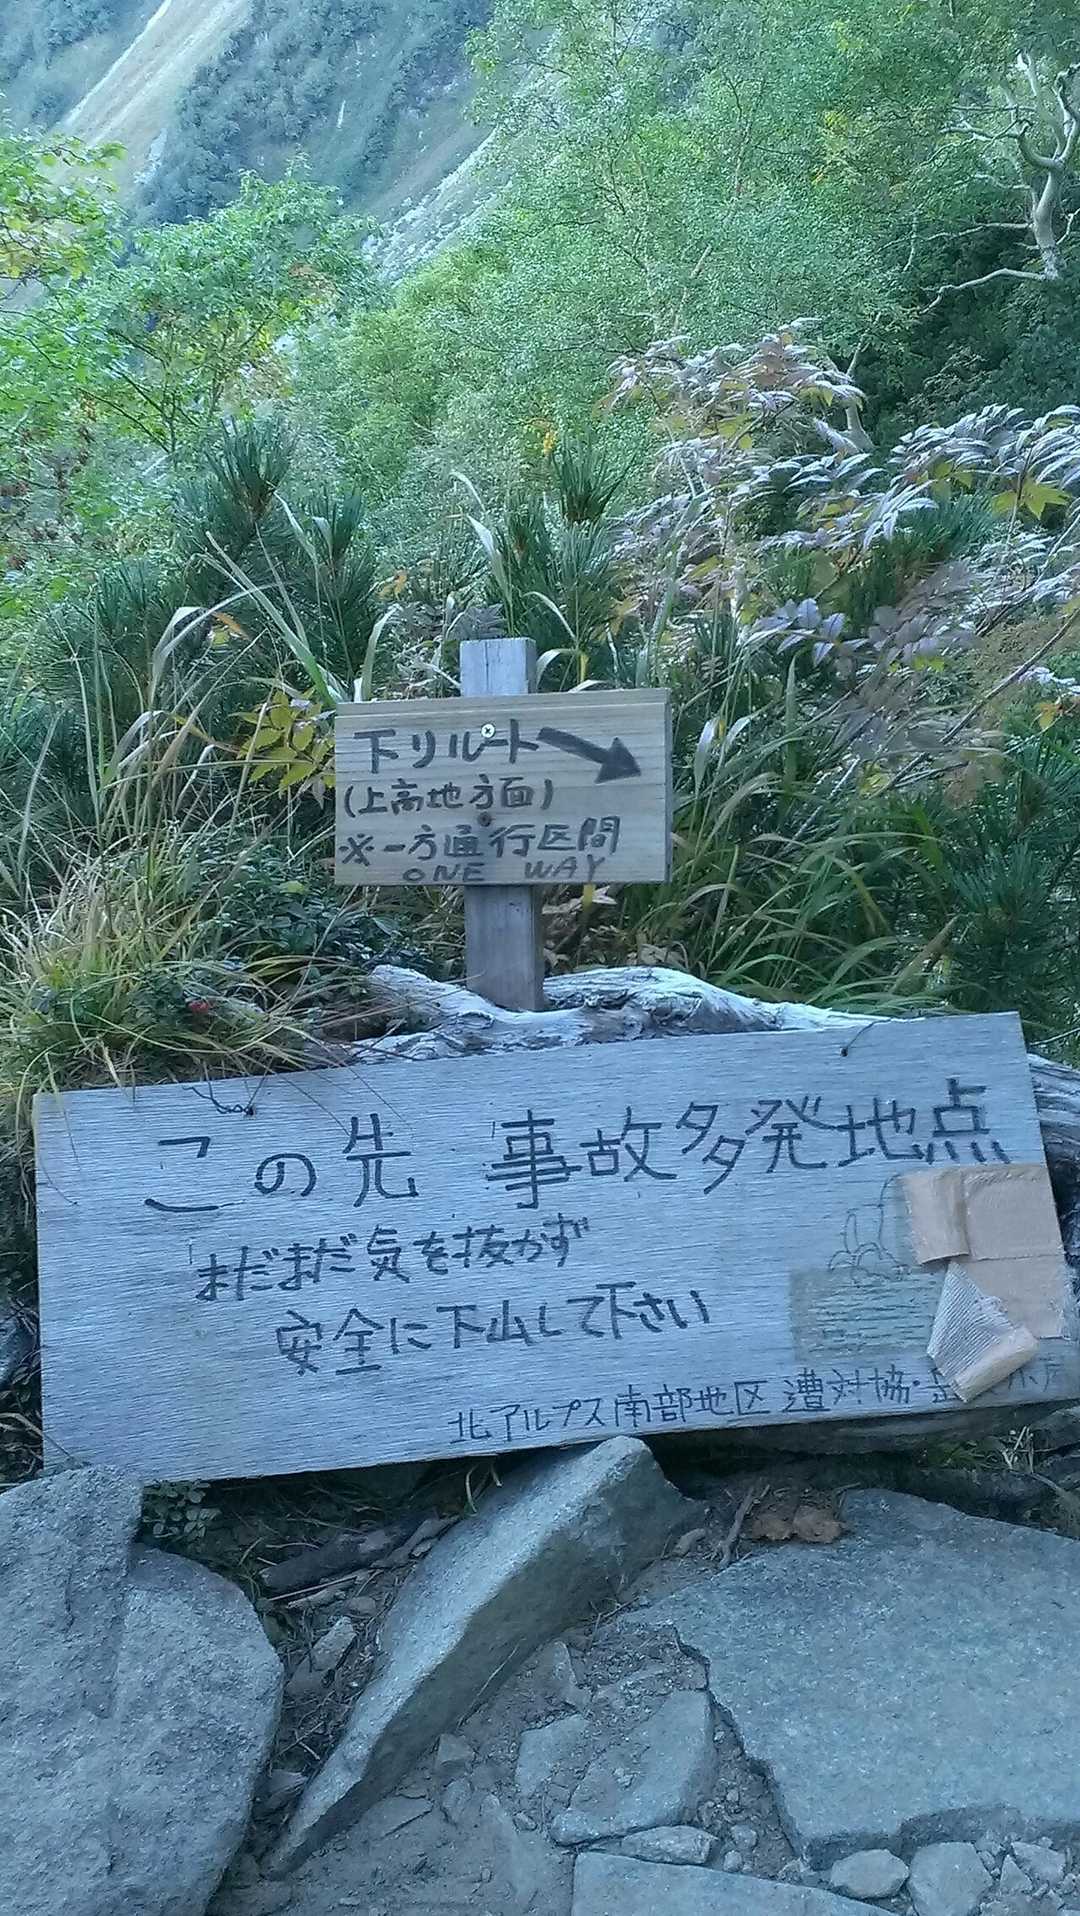 下りルート
(上高地方面)
※一方通行区間
ONE WAY
この先 事故多発地点
まだまだ気を抜かず
安全に下山して下さい
北アルプス南部地区遭対協・岳